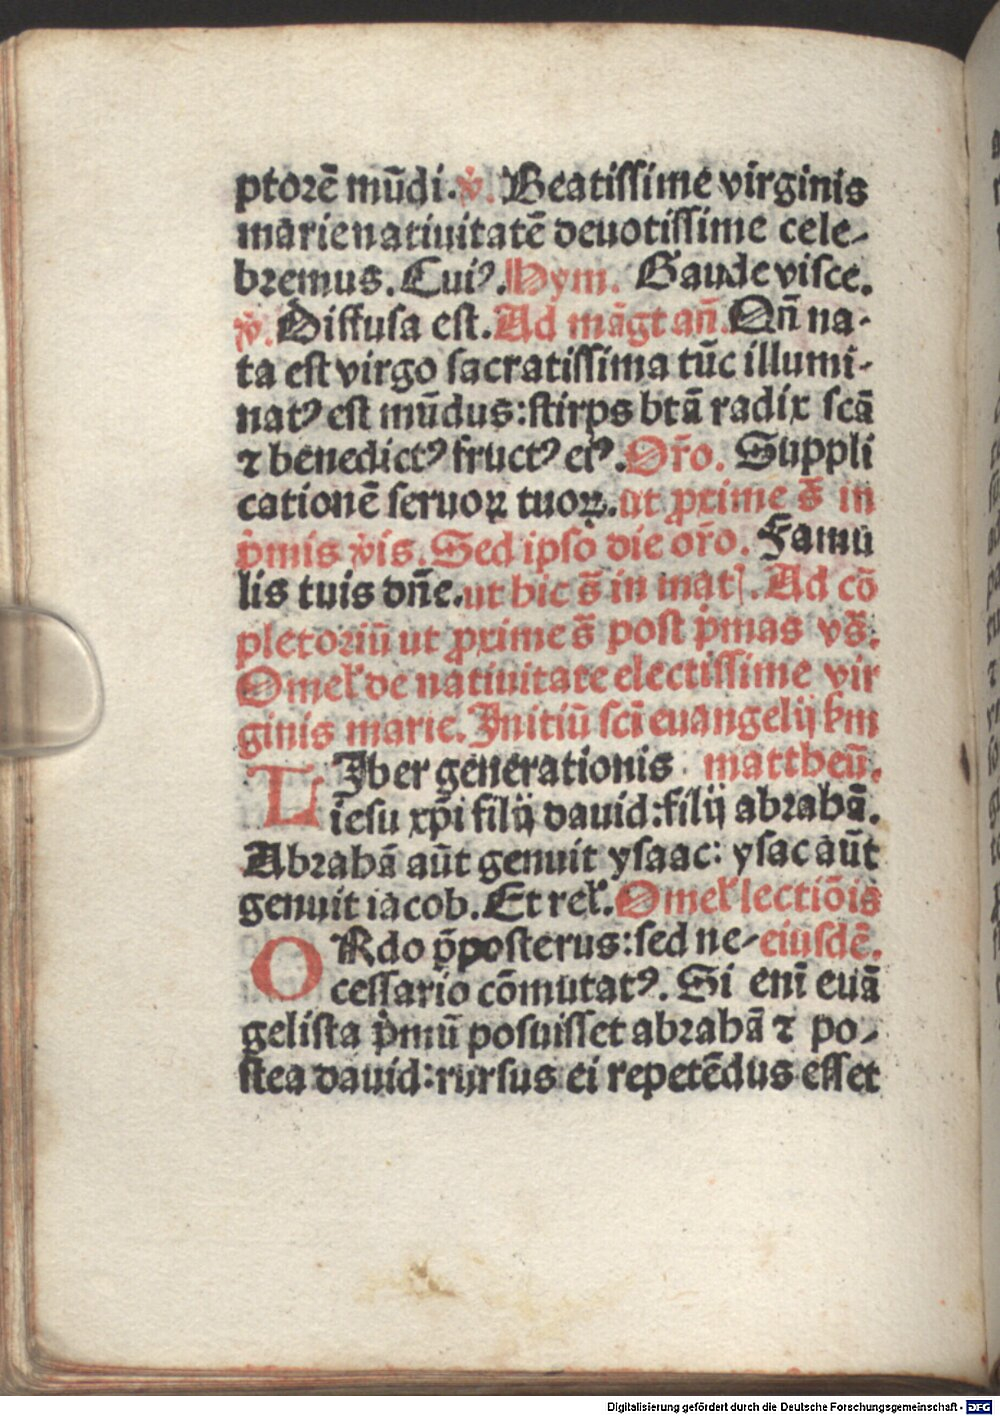 ptorē mūdi. v̄. Beatissime virginis
marie natiuitatē deuotissime cele-
bremus. Cuiꝰ. Hym. Gaude visce.
v̄. Diffusa est. Ad māgt an̄. Qn̄ na-
ta est virgo sacratissima tūc illumi-
natꝰ est mūdus: stirps btā radix scā
⁊ benedictꝰ fructꝰ eiꝰ. Or̄o. Suppli
cationē seruoꝝ tuoꝝ. ut ꝓxime s̄ in
p̄mis v̄is. Sed ipso die or̄o. Famu
lis tuis dn̄e. ut hic s̄ in mat. Ad cō
pletoriū ut ꝓxime s̄ post p̄mas vs̄.
Omel' de natiuitate electissime vir
ginis marie. Initiū sci euangelij km
LIber generationis mattheū.
iesu xp̄i filij dauid: filij abrahā.
Abrahā aūt genuit ysaac: ysac aūt
genuit iacob. Et rel'. Omel' lectiōis
ORdo p̄posterus: sed ne- eiusdē.
cessario cōmutatꝰ. Si eni euā
gelista p̄mū posuisset abrahā ⁊ po-
stea dauid: rursus ei repetēdus esset
Digitalisierung gefördert durch die Deutsche Forschungsgemeinschaft - DFG